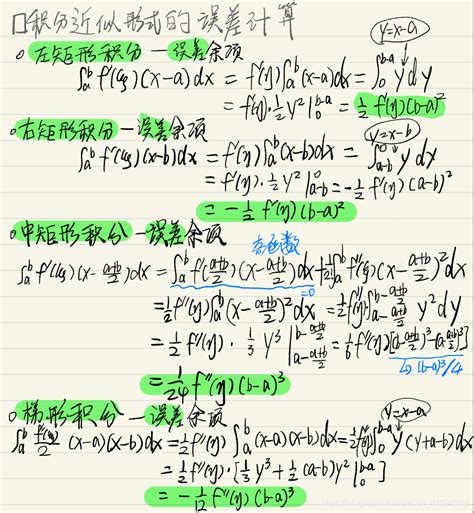 积分近似形式的误差计算
y=x-a
左矩形积分—误差余项
∫ₐᵇ f'(ξ)(x-a)dx = f'(η)∫ₐᵇ(x-a)dx = ∫₀ᵇ⁻ᵃ y dy
= f'(η)·½y²|₀ᵇ⁻ᵃ = ½f'(η)(b-a)²
y=x-b
右矩形积分—误差余项
∫ₐᵇ f'(ξ)(x-b)dx = f'(η)∫ₐᵇ(x-b)dx = ∫⁰ₐ₋b y dy
= f'(η)·½y²|⁰ₐ₋b = -½f'(η)(a-b)²
= -½f'(η)(b-a)²
中矩形积分—误差余项
奇函数
∫ₐᵇ f'(ξ)(x-(a+b)/2)dx = ∫ₐᵇ f'((a+b)/2)(x-(a+b)/2)dx + ½∫ₐᵇ f''(ξ)(x-(a+b)/2)²dx
=0
= ½f''(η)∫ₐᵇ(x-(a+b)/2)²dx = ½f''(η)∫ y²dy
= ½f''(η)·⅓y³| = ⅙f''(η)[(b-(a+b)/2)³-(a-(a+b)/2)³]
↳(b-a)³/4
= 1/24 f''(η)(b-a)³
y=x-a
梯形积分—误差余项
∫ₐᵇ f''(ξ)/2 (x-a)(x-b)dx = ½f''(η)∫ₐᵇ(x-a)(x-b)dx = ½f''(η)∫₀ᵇ⁻ᵃ y(y+a-b)dy
= ½f''(η)·[⅓y³+½(a-b)y²|₀ᵇ⁻ᵃ]
= -1/12 f''(η)(b-a)³